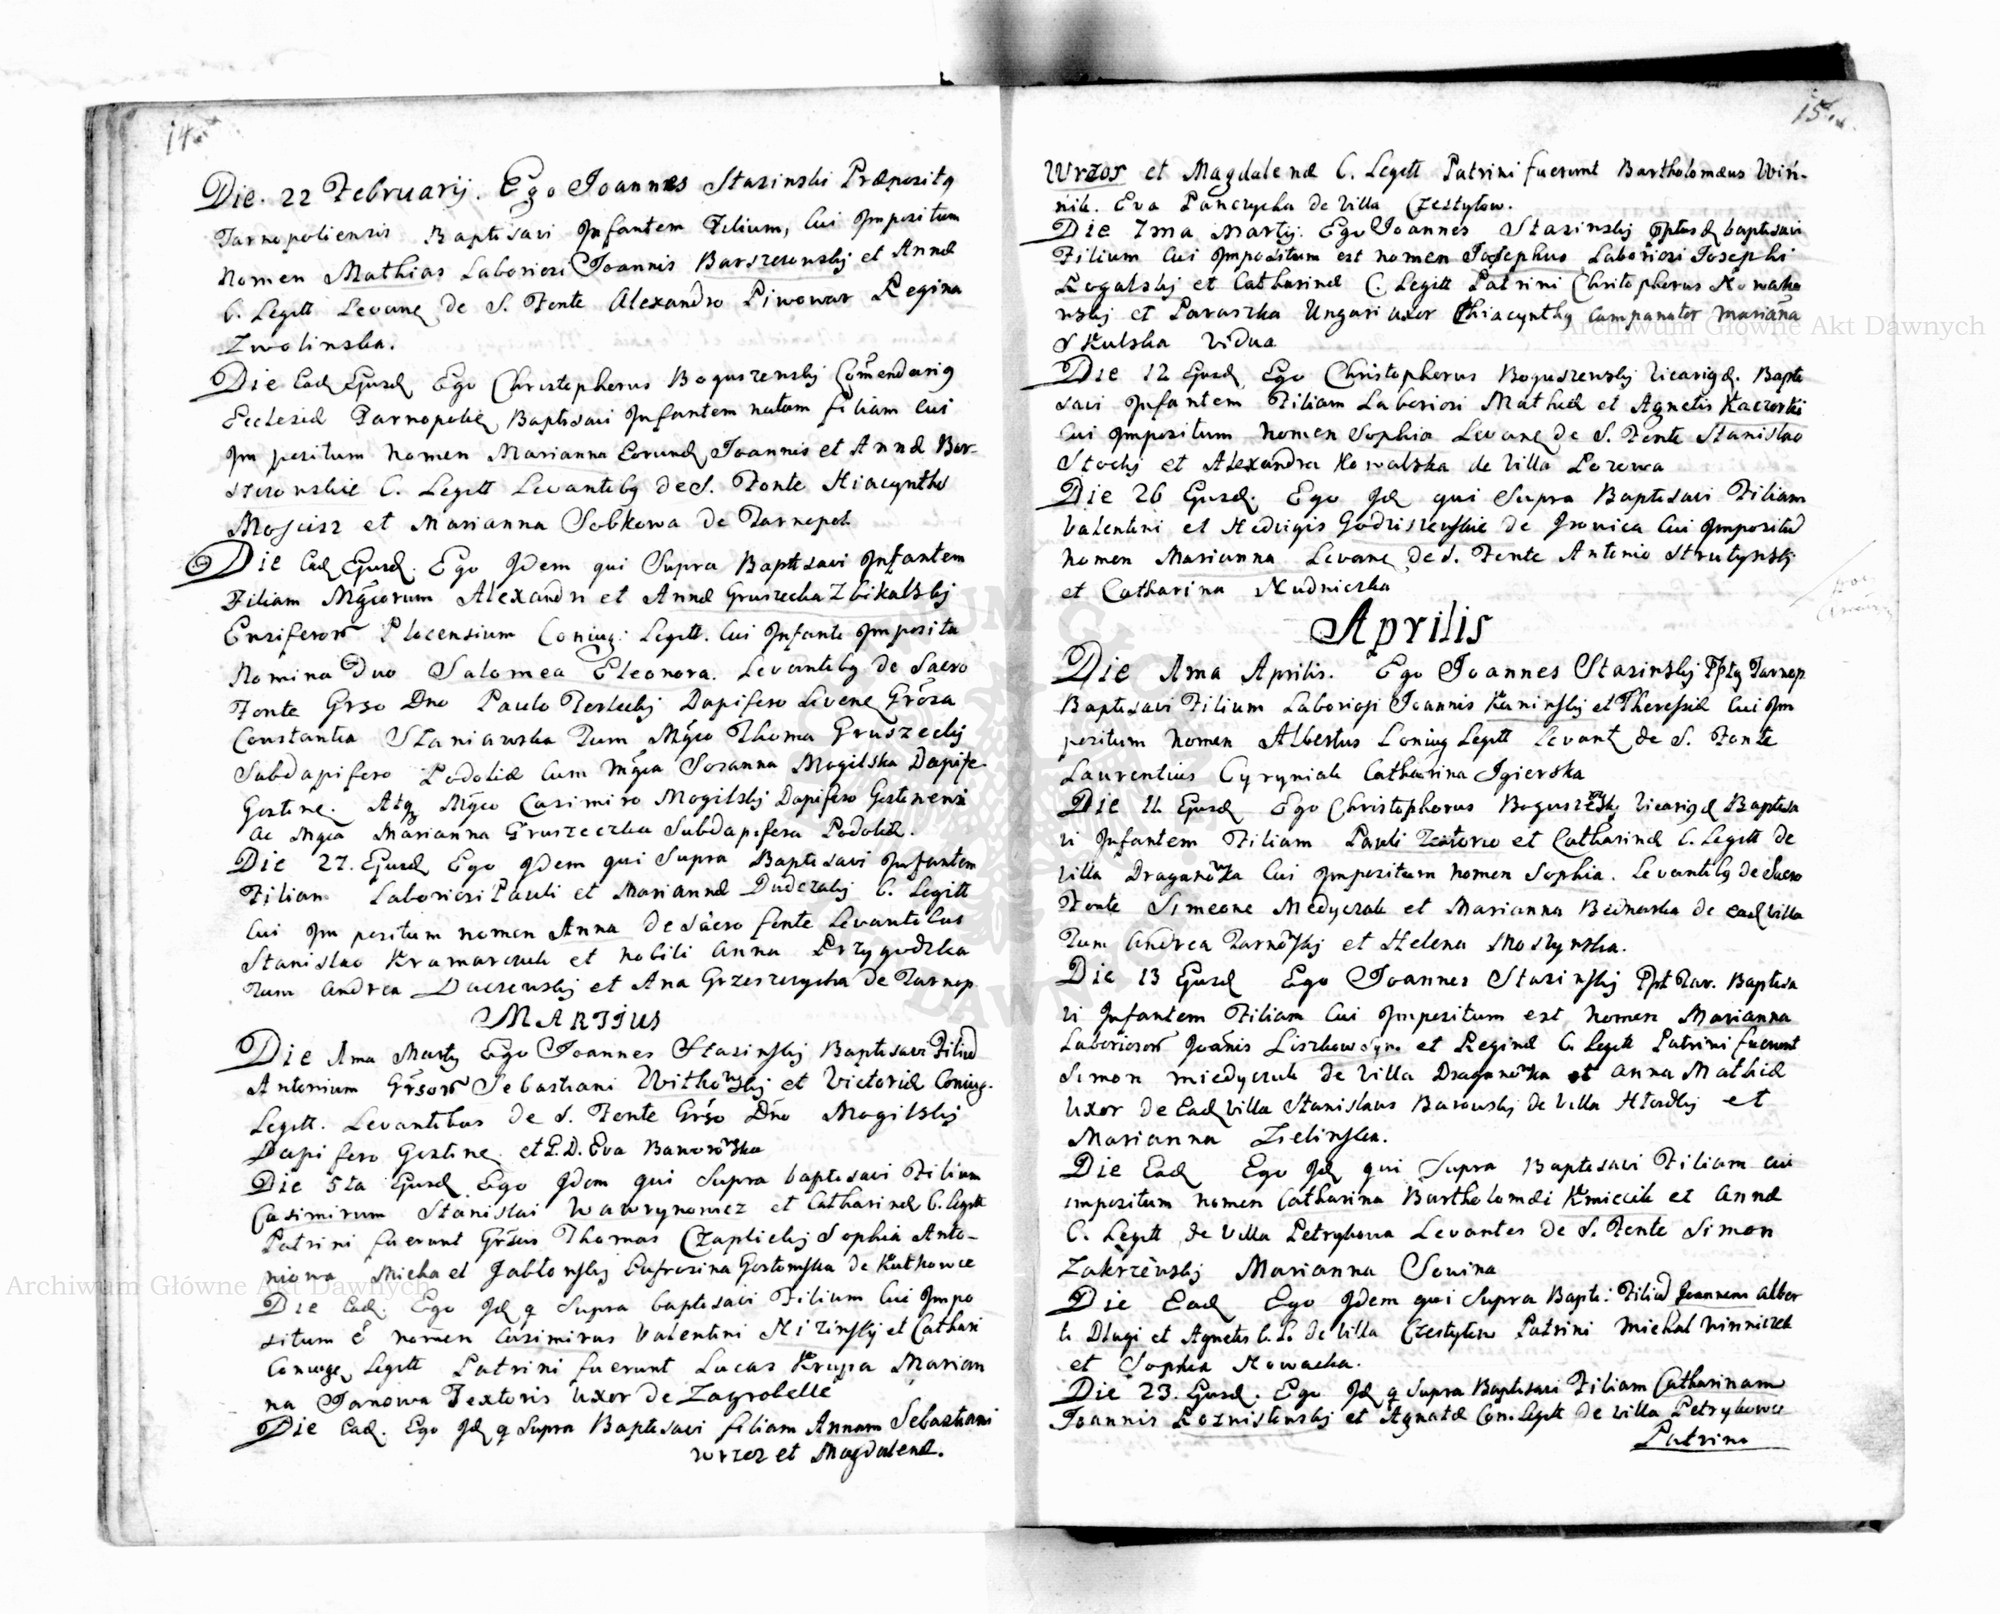 14
Die 22 Februarij. Ego Joannes Stasinski Præpositq
Tarnopoliensis Baptisavi Infantem Filium, Cui Impositum
Nomen Mathias Laboriosi Joannis Barszczowskij et Annæ
C. Legitt Levane de S. Fonte Alexandro Piwowar Regina
Zwolinska.
Die Ead Ejusd Ego Christophorus Boguszewskij Comendariq
Ecclesiæ Tarnopolie Baptisavi Infantem natam filiam Cui
Im positum Nomen Marianna Eorund Joannis et Annæ Bar-
szczowskie C. Legitt Levantibq de S. Fonte Hiacyntho
Moscisz et Marianna Sobkowa de Tarnopol
Die Ead Ejusd. Ego Idem qui Supra Baptisavi Infantem
Filiam Mgcorum Alexandri et Annæ Gruszecka Zbikalskij
Ensiferor Plocensium Coniug: Legitt. Cui Infanti Imposita
Nomina Duo Salomea Eleonora. Levantibq de Sacro
Fonte Grso Dno Paulo Dapifero Grosa
Constantia Staniawska Tum Mgco Thoma Gruszeckij
Subdapifero Podoliæ Cum Mgca Sosanna Mogilska Dapife
Gostine. Atq Mgco Casimiro Mogilskij Dapifero Gostinensi
ac Mgca Marianna Gruszeczka Subdapifera Podoliæ.
Die 27. Ejusd Ego Idem qui Supra Baptisavi Infantem
Filiam Laboriosi Pauli et Mariannæ Dudczakij C. Legitt
Cui Im positum nomen Anna de Sacro fonte Levantibus
Stanislao Kramarczuk et nobili Anna Przygodzka
Tum Andrea Daczewskij et Ana Grzeszczycha de Tarnop
MARTIUS
Die 1ma Martij Ego Joannes Stasinskij Baptisavi Filiu
Antonium Grsor Sebastiani Withowskij et Victoriæ Coniug.
Legitt. Levantibus de S. Fonte Grso Dno Mogilskij
Dapi fero Gostine et P.D. Eva Baworowska
Die 5ta Ejusd Ego Idem qui Supra baptisavi Filium
Casimirum Stanislai Wawrynowicz et Catharinæ C. Legitt
Patrini fuerunt Grsus Thomas Czaplickij Sophia Anto-
niowa Michael Jablonskij Eufrosina Gostomska de Kutkowce
Die Ead. Ego Id q Supra baptisavi Filium Cui Impo
situm e nomen Casimirus Valentini Nizinskij et Cathari
Coniuge Legitt Patrini fuerunt Lucas Krupa Marian
na Janowa Textoris Uxor de Zagrobelle
Die Ead. Ego Id q Supra Baptisavi filiam Annam Sebastiani
Wrzos et Magdalenæ.
15
Wrzos et Magdalenæ C. Legitt Patrini fuerunt Bartholomæus Win-
nik. Eva Panczycha de Villa Czestylow.
Die 7ma Martij. Ego Joannes Stasinskij baptisavi
Filium Cui Impositum est nomen Josephus Laboriosi Josephi
Rogalskij et Catharinæ C. Legitt Patrini Christophorus Nowako
wskij et Paraszka Ungari uxor Hiacynthq Campanator Mariana
Skulska Vidua
Die 12 Ejusd Ego Christophorus Boguszewskij Vicariqd. Bapti
savi Infantem Filiam Laboriosi Mathiæ et Agnetis Kaczorski
Cui Impositum Nomen Sophia Levane de S. Fonte Stanislao
Stockij et Alexandra Kowalska de Villa Pozowa
Die 26 Ejusd. Ego Id qui Supra Baptisavi Filiam
Valentini et Hedvigis Godziszewskie de Ironica Cui Impositu
Nomen Marianna Levane de S. Fonte Antonio Strutynskij
et Catharina Nudniczka
Aprilis
Die 1ma Aprilis. Ego Joannes Stasinskij Pptq Tarnop
Baptisavi Filium Laboriosi Joannis Kaninskij et Theressiæ Cui Im
positum Nomen Albertus Coniug Legitt Levant de S. Fonte
Laurentius Cyryniak Catharina Jgierska
Die 11 Ejusd Ego Christophorus Boguszewskij Vicariqd Baptisa
vi Infantem Filiam Pauli et Catharinæ C. Legitt de
Villa Draganowka Cui Impositum nomen Sophia. Levantibq de Sacro
Fonte Simeone Medyczak et Marianna Bednarka de ead Villa
Tum Andrea Tarnowskij et Helena Moszynska.
Die 13 Ejusd Ego Joannes Stasinskij Ppt Tar. Baptisa
vi Infantem Filiam Cui Impositum est Nomen Marianna
Laboriosor Joanis Liszkow Syn et Reginæ C. Legitt Patrini fuerunt
Simon miedyczuk de Villa Draganowka et Anna Mathiæ
Uxor de Ead Villa Stanislaus Barowskij de Villa et
Marianna Zielinska.
Die Ead Ego Id qui Supra Baptisavi Filiam cui
impositum nomen Catharina Bartholomæi Kmiecik et Annæ
C. Legitt de Villa Petrykowa Levantes de S. Fonte Simon
Zakrzewskij Marianna Sowina
Die Ead Ego Idem qui Supra Bapti: Filiu Joannem Alber
ti Dlugi et Agnetis C. L. de Villa Czestylow Patrini Michal Winniczek
et Sophia Nowacka.
Die 23. Ejusd. Ego Id q Supra Baptisavi Filiam Catharinam
Joannis Roznistowskij et Agnatæ Con. Legitt de Villa Petrykowce
Patrini
Archiwum Główne Akt Dawnych
Archiwum Główne Akt Dawnych